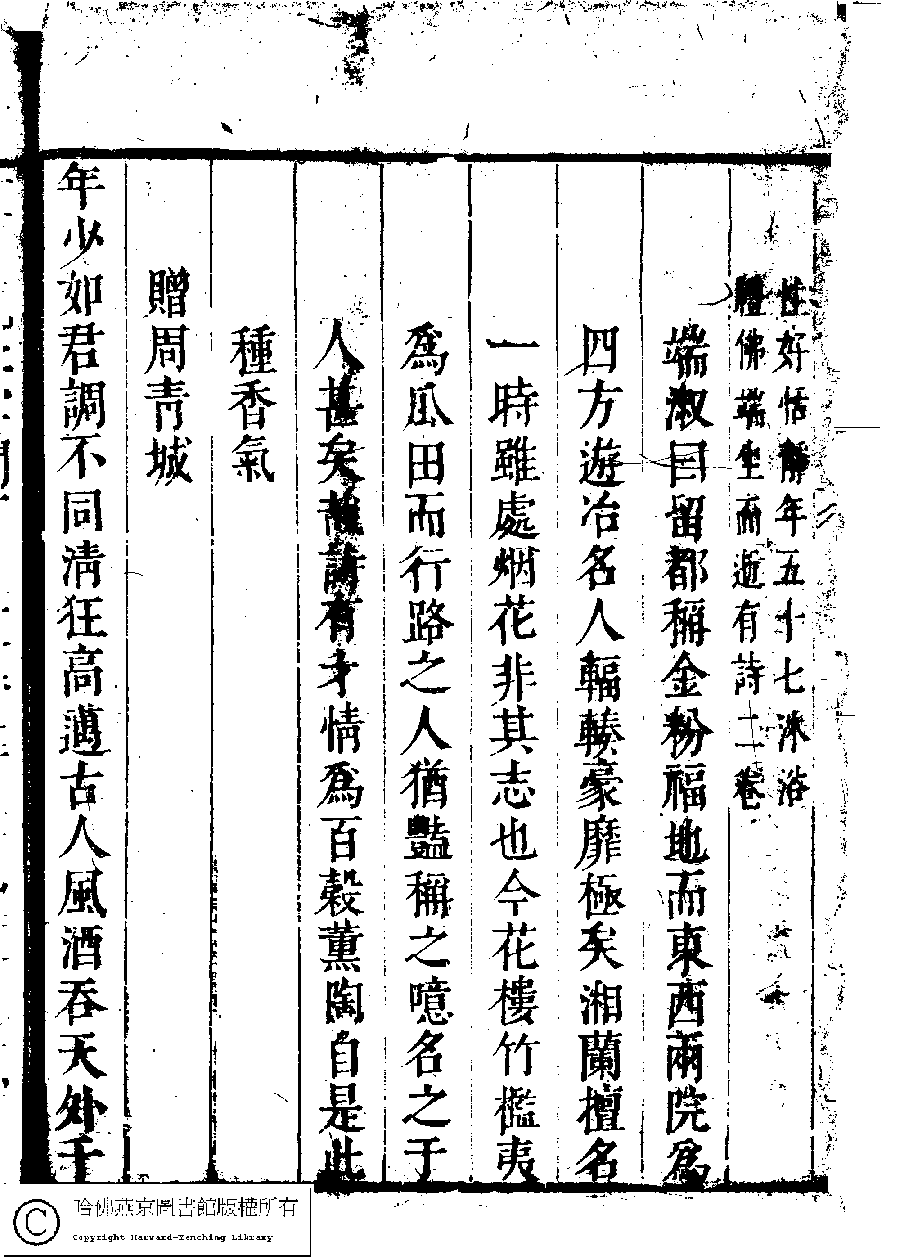 性好恬靜年五十七沐浴
禮佛端坐而逝有詩二卷
端淑曰留都稱金粉福地而東西兩院爲
四方遊冶名人輻輳豪靡極矣湘蘭擅名
一時雖處烟花非其志也今花樓竹檻夷
爲瓜田而行路之人猶豔稱之噫名之于
人甚矣哉詩有才情爲百穀薰陶自是此
種香氣
贈周青城
年少如君調不同淸狂高邁古人風酒吞天外千
哈佛燕京圖書館版權所有
Copyright Harvard-Yenching Library